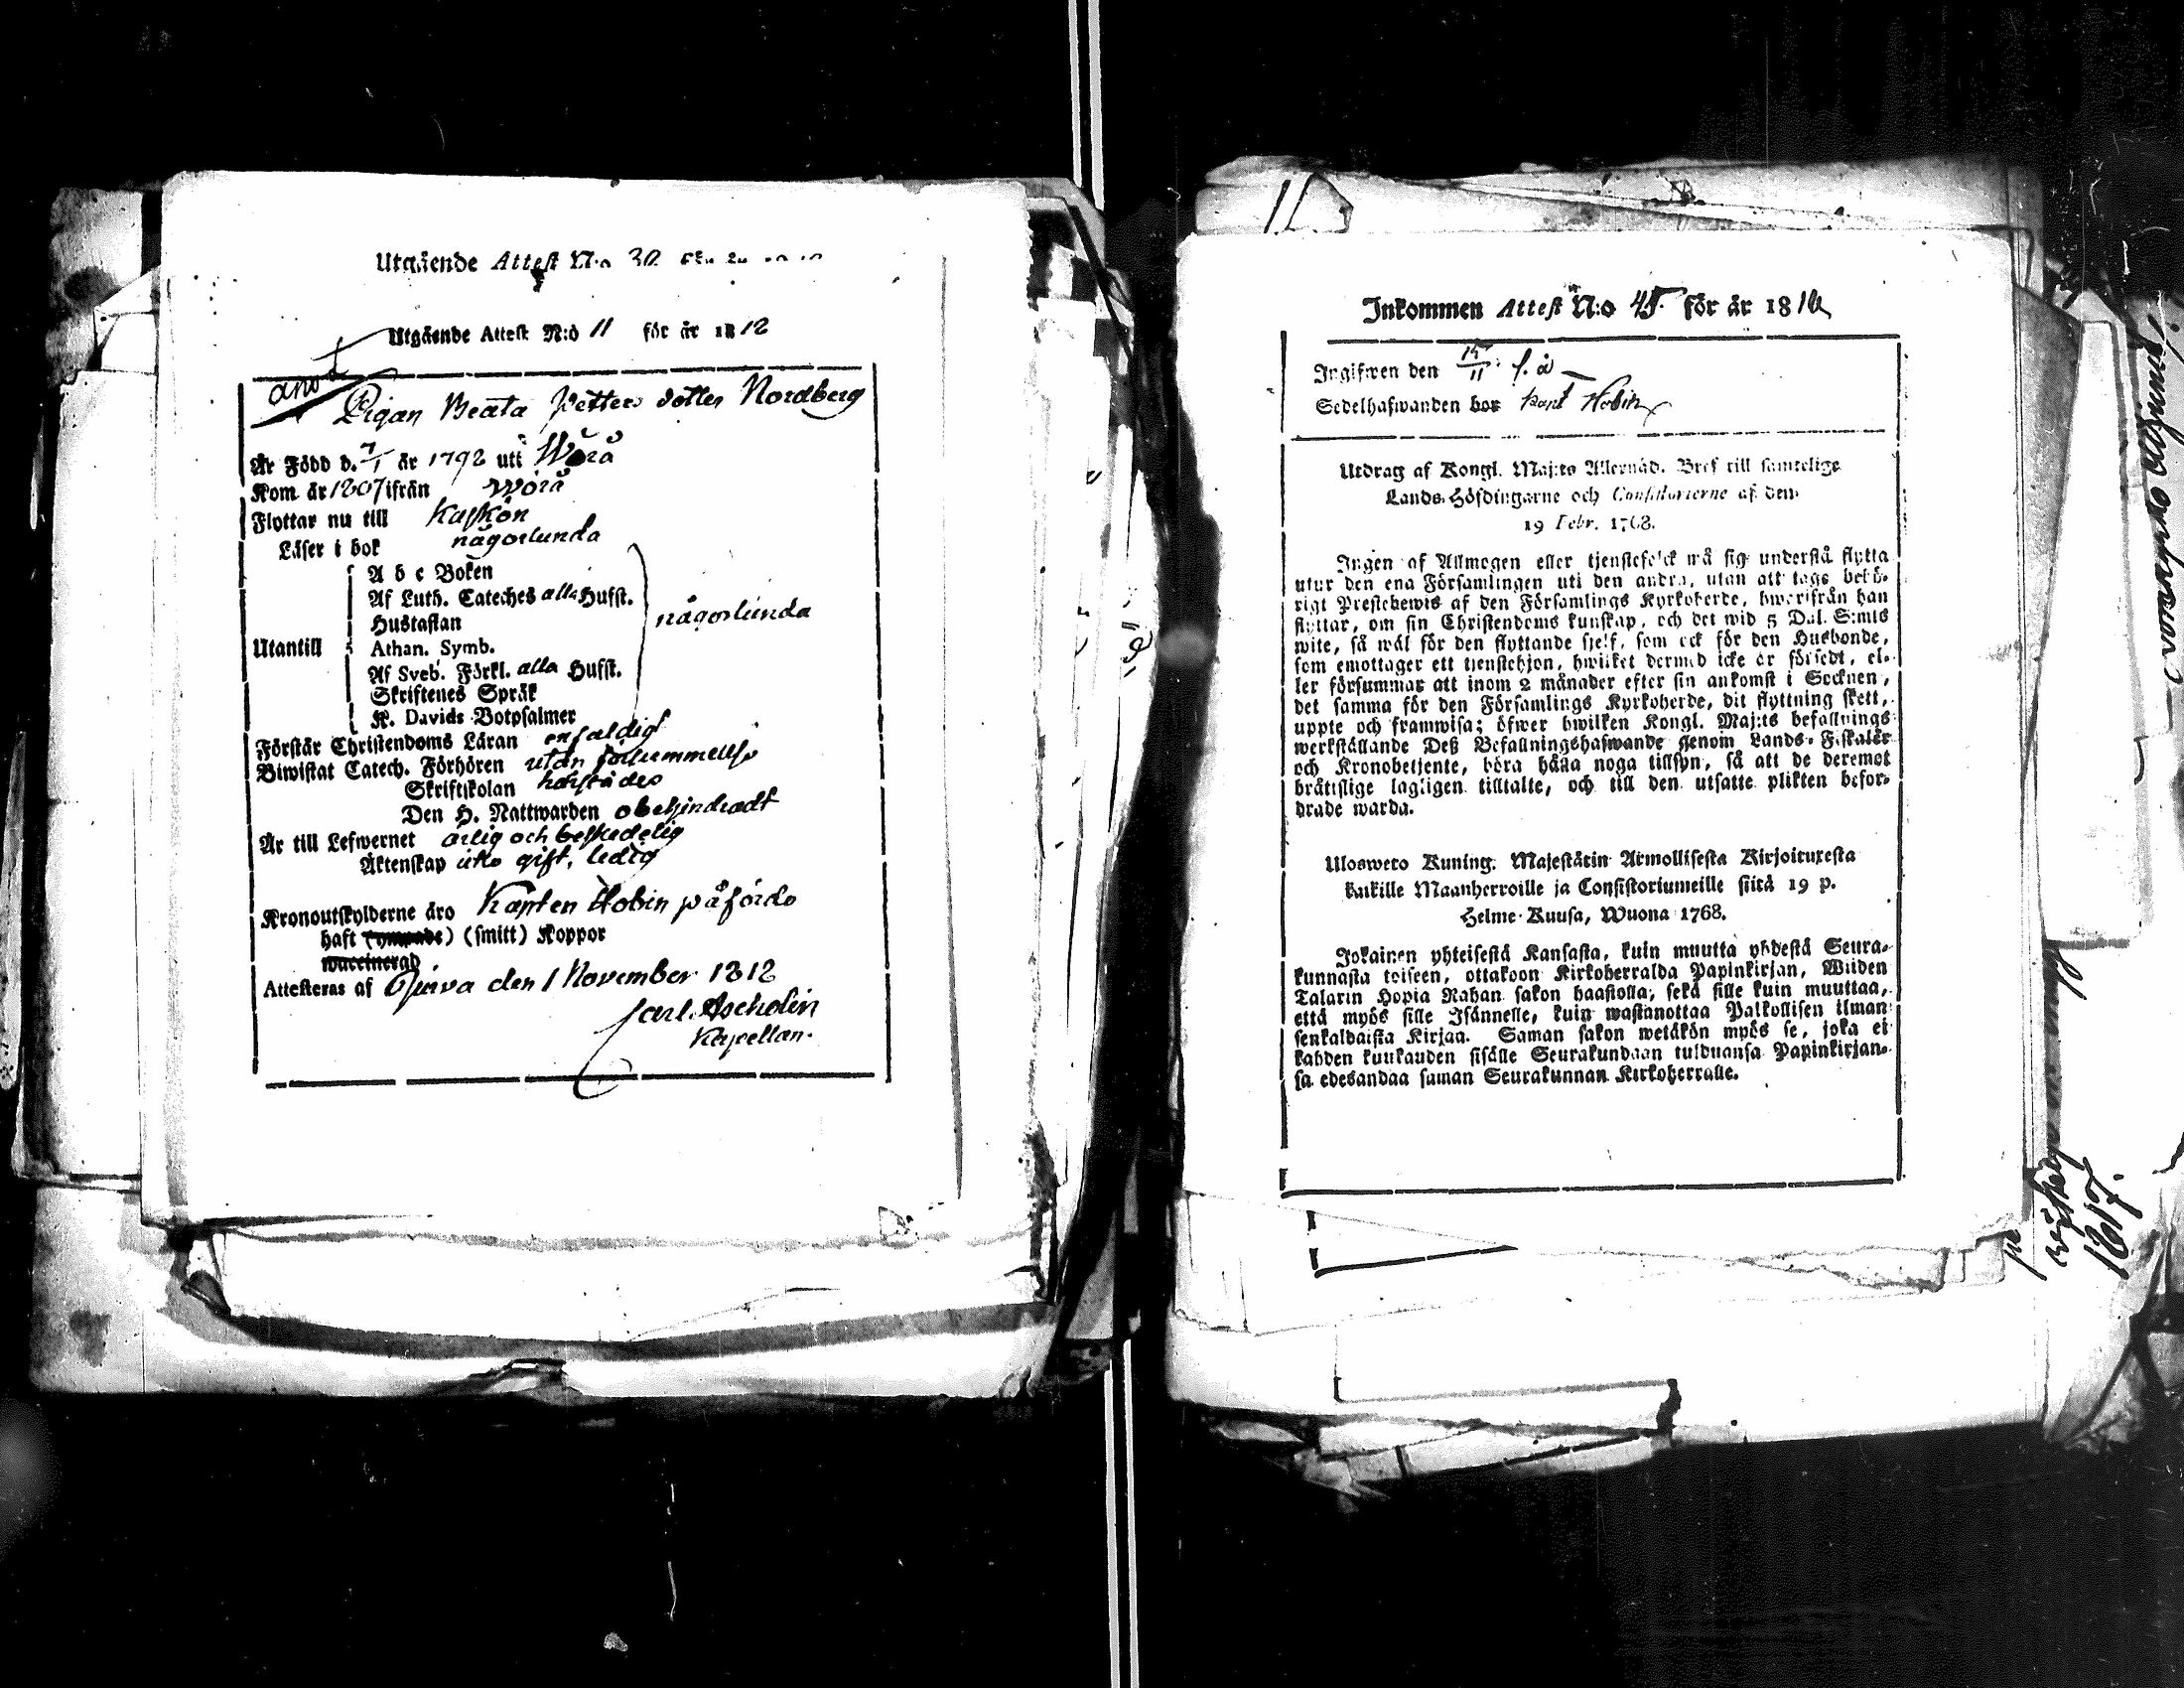 Utgående Attest N:o 30
Utgående Attest N:o 11 för år 1812
anot
Pigan Beata Petters dotter Nordberg
Är Född d. 7/1 år 1792 uti Wörå
Kom år 1807 ifrån Wörå
Flyttar nu till Kaskön
Läser i bok någorlunda
A b c Boken
Af Luth. Cateches alla Hufst.
Hustaflan
Utantill
Athan. Symb.
Af Sveb. Förkl. alla Hufst.
Skriftenes Språk
K. Davids Botpsalmer
någorlunda
Förstår Christendoms Läran enfaldigt
Biwistat Catech. Förhören utan försummelse
Skriftskolan härstädes
Den H. Nattwarden obehindradt
Är till Lefwernet ärlig och beskedelig
Äktenskap icke gift, ledig
Kronoutskylderne äro Kapten Hobin påförde
haft (ympade) (smitt) Koppor
waccinerad
Attesteras af den 1 November 1812
Carl Ascholin
Kapellan.
Inkommen Attest N:o 45. för år 181
Ingifwen den 15/11 s. å
Sedelhafwanden bor Hobin
Utdrag af Kongl. Maj:ts Allernåd. Bref till samtelige
Lands-Höfdingarne och Consistorierne af den
19 Febr. 1768.
Ingen af Allmogen eller tjenstefolck må sig understå flytta
utur den ena Församlingen uti den andra, utan att taga behö-
rigt Prestebewis af den Församlings Kyrkoherde, hwarifrån han
flyttar, om sin Christendoms kunskap, och det wid 5 Dal. S:mts
wite, så wäl för den flyttande sjelf, som ock för den Husbonde,
som emottager ett tjenstehjon, hwilket dermed icke är försedt, el-
ler försummar att inom 2 månader efter sin ankomst i Socknen,
det samma för den Församlings Kyrkoherde, dit flyttning skett,
uppte och framwisa; öfwer hwilken Kongl. Maj:ts befallnings
werkställande Deß Befallningshafwande genom Lands-Fiskaler
och Kronobetjente, böra hålla noga tillsyn, så att de deremot
bråtslige lagligen tilltalte, och till den utsatte plikten befor-
drade warda.
Ulosweto Kuning. Majestätin Armollisesta Kirjoituxesta
kaikille Maanherroille ja Consistoriumeille siitä 19 p.
Helme-Kuusa, Wuona 1768.
Jokainen yhteisestä Kansasta, kuin muutta yhdestä Seura-
kunnasta toiseen, ottakoon Kirkoherralda Papinkirjan, Wiiden
Talarin Hopia Rahan sakon haastolla, sekä sille kuin muuttaa,
että myös sille Isännelle, kuin wastanottaa Palkollisen ilman
senkaldaista Kirjaa. Saman sakon wetäkön myös se, joka ei
kahden kuukauden sisälle Seurakundaan tulduansa Papinkirjan-
sa edesandaa saman Seurakunnan Kirkoherralle.
1817.